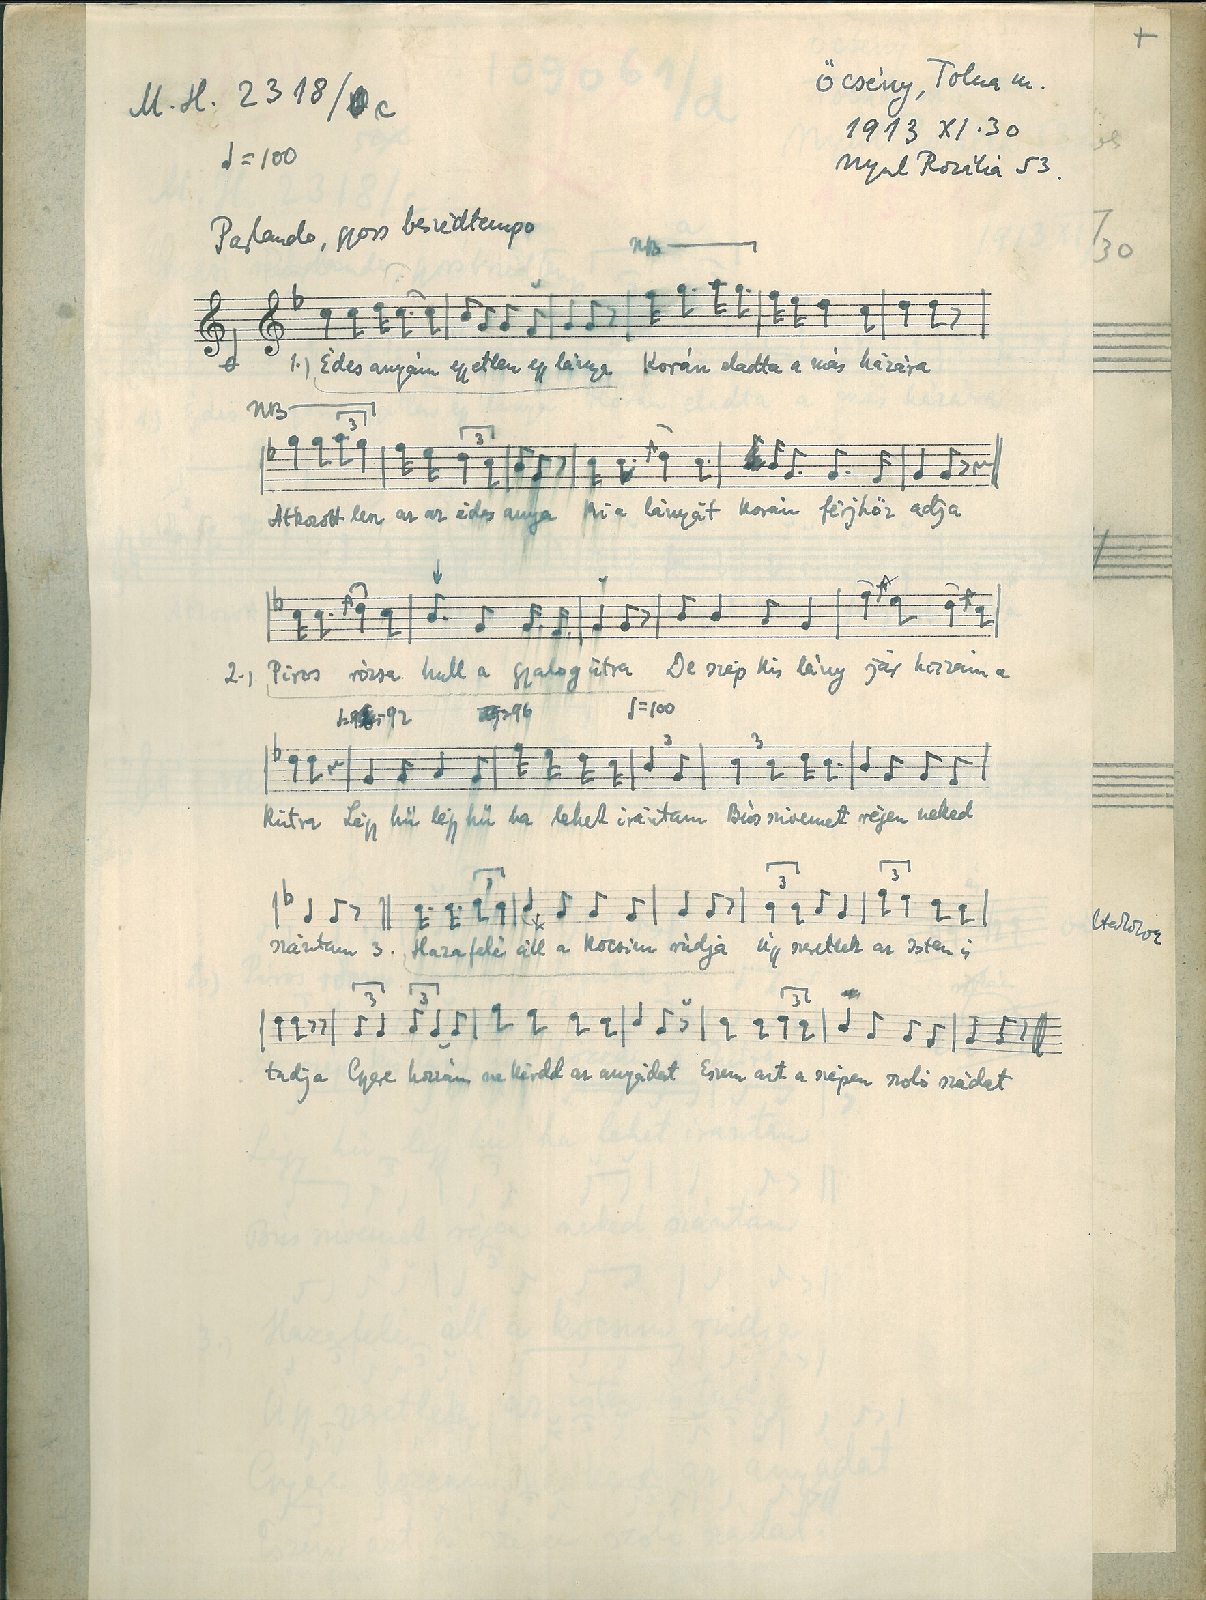 M.H. 2318/c
Őcsény, Tolna m.
1913 XI.30
♩=100
Nyul Rozália 53.
Parlando, gyors beszédtempo
NB
1.) Édes anyám egyetlen egy lánya Korán eladta a más házára
NB
3 3
Átkozott len az az édes anya Ki a lányát korán férjhöz adja
2.) Piros rózsa hull a gyalog útra De szép kis lány jár hozzám a
=92 =96 ♪=100
3 3
kútra Légy hű légy hű ha lehet irántam Bús szivemet régen neked
3 3 3
szántam 3. Hazafelé áll a kocsim rúdja Úgy szetlek az Isten is
3 3 3
tudja Gyere hozzám ne kérdd az anyádat Eszem azt a szépen szoló szádat